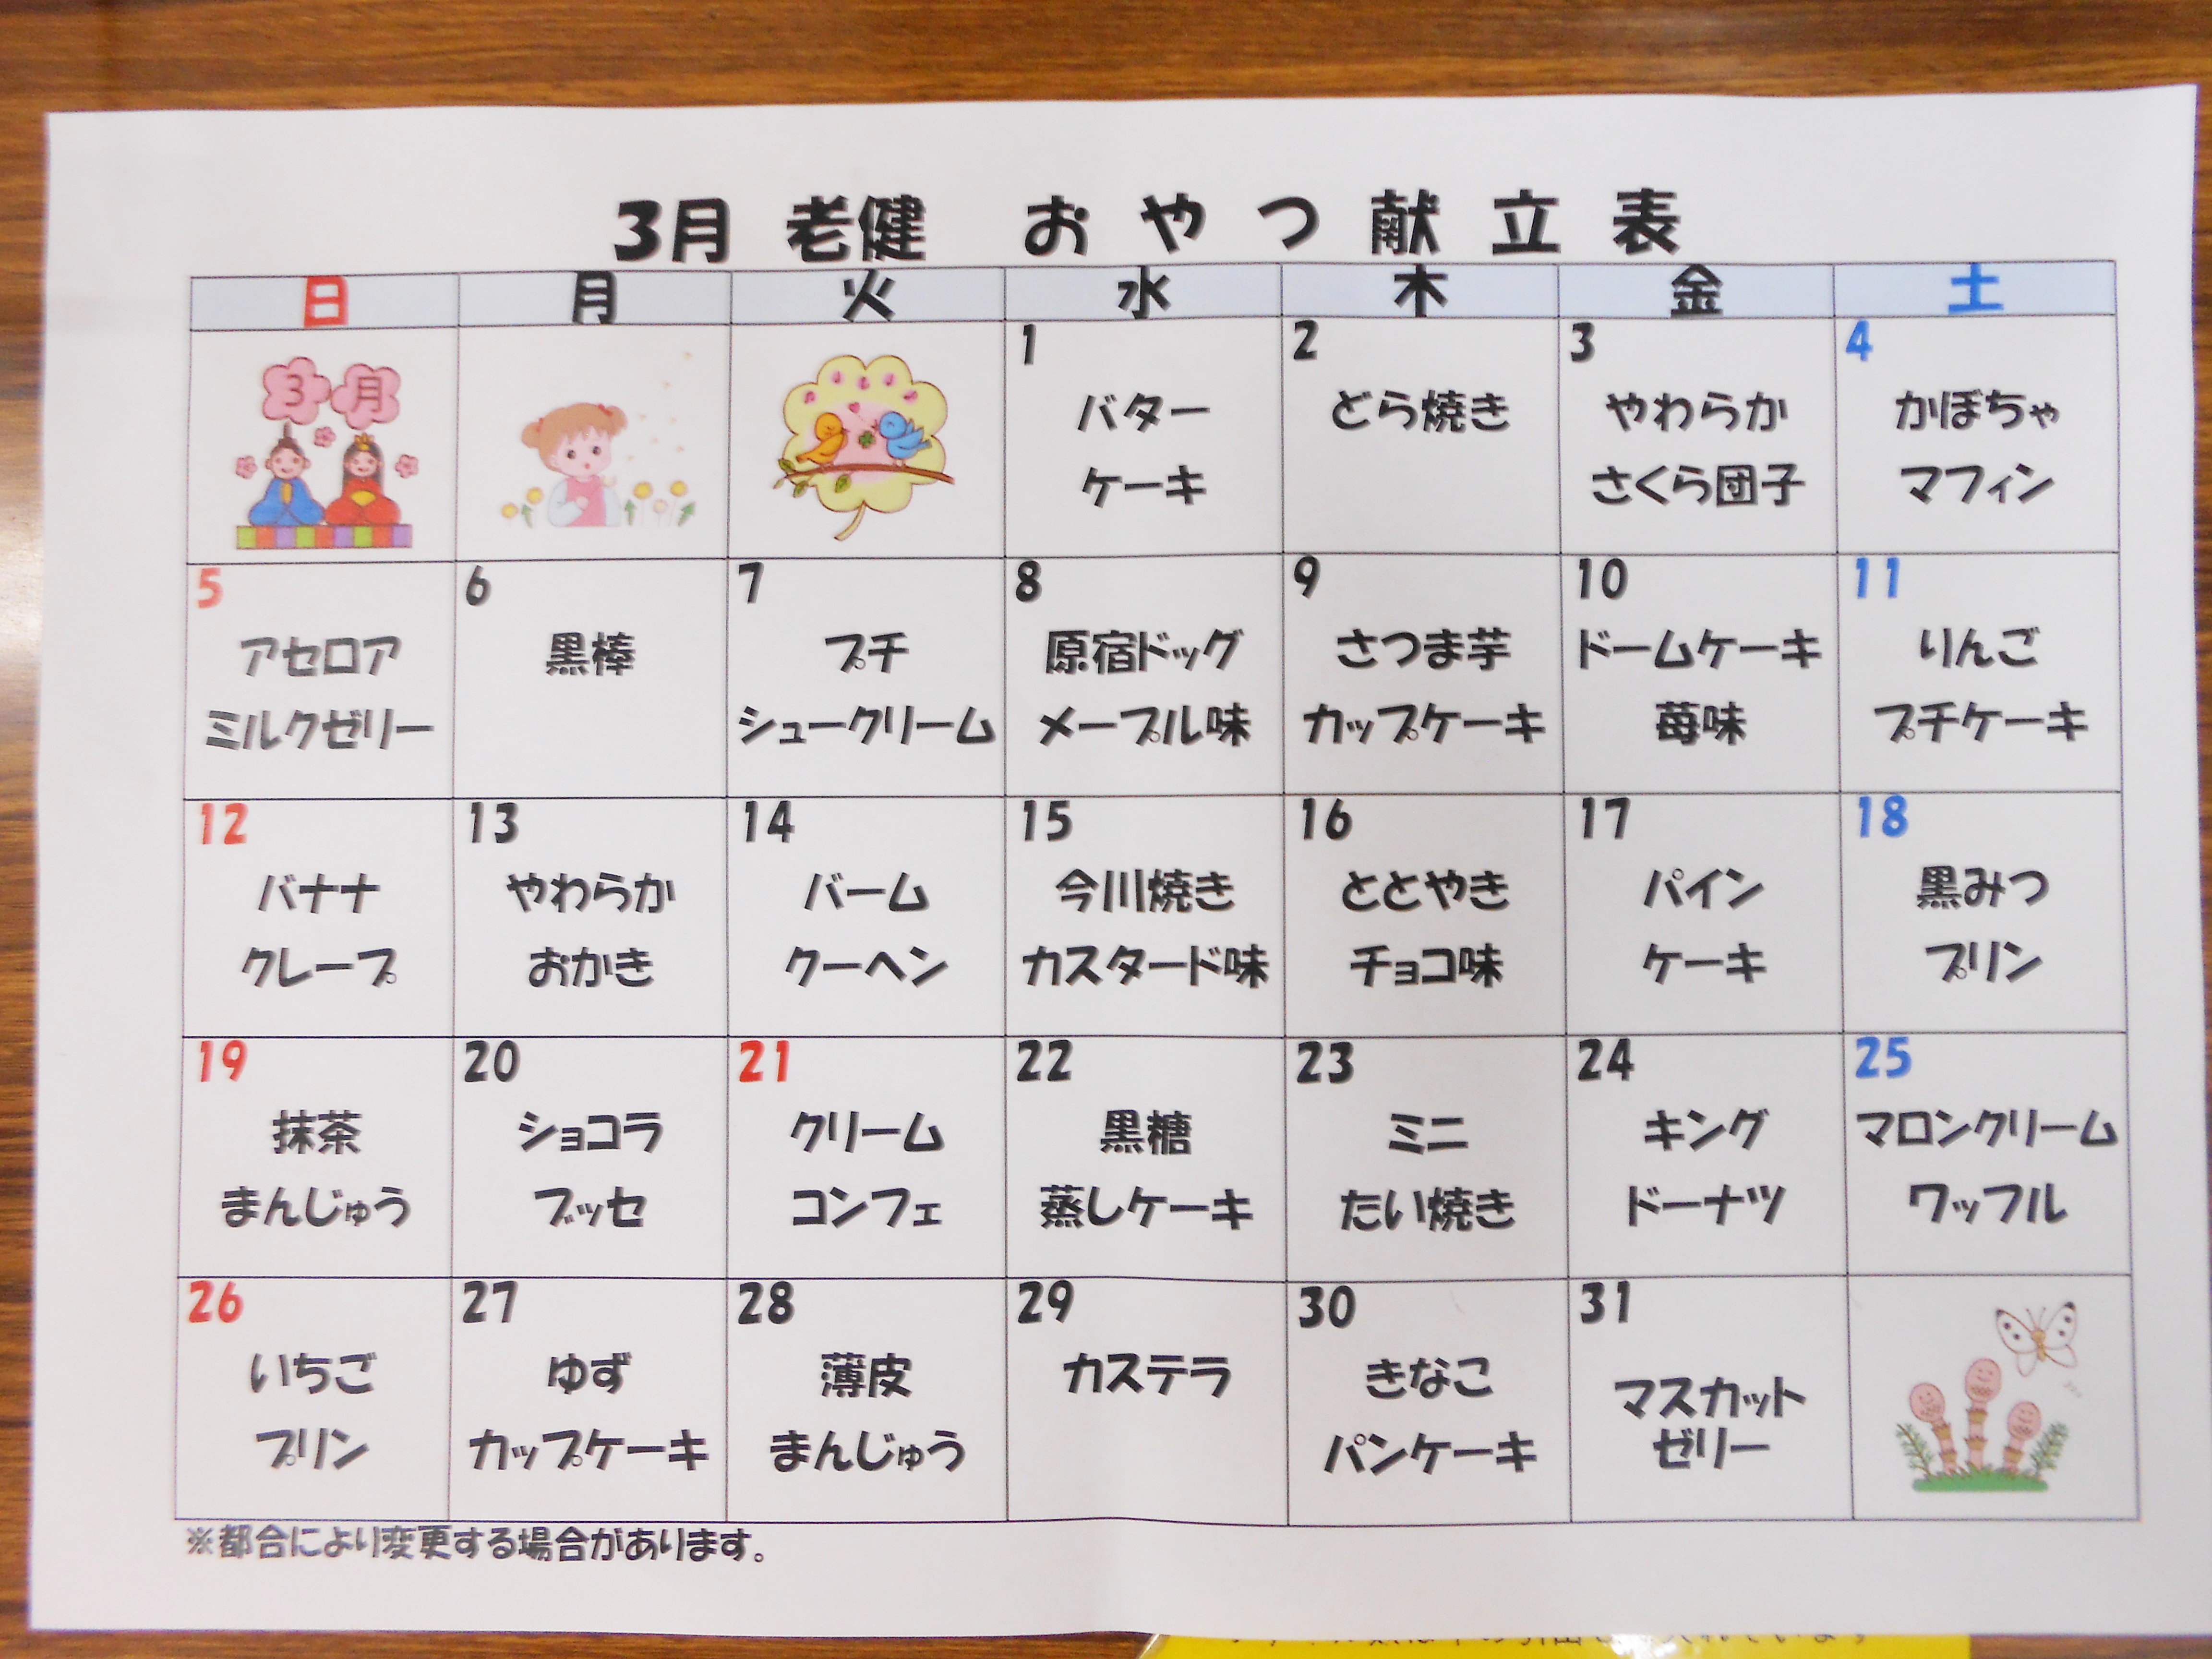 3月 老健 おやつ献立表
日 月 火 水 木 金 土
3月
1
バター
ケーキ
2
どら焼き
3
やわらか
さくら団子
4
かぼちゃ
マフィン
5
アセロア
ミルクゼリー
6
黒棒
7
プチ
シュークリーム
8
原宿ドッグ
メープル味
9
さつま芋
カップケーキ
10
ドームケーキ
苺味
11
りんご
プチケーキ
12
バナナ
クレープ
13
やわらか
おかき
14
バーム
クーヘン
15
今川焼き
カスタード味
16
ととやき
チョコ味
17
パイン
ケーキ
18
黒みつ
プリン
19
抹茶
まんじゅう
20
ショコラ
ブッセ
21
クリーム
コンフェ
22
黒糖
蒸しケーキ
23
ミニ
たい焼き
24
キング
ドーナツ
25
マロンクリーム
ワッフル
26
いちご
プリン
27
ゆず
カップケーキ
28
薄皮
まんじゅう
29
カステラ
30
きなこ
パンケーキ
31
マスカット
ゼリー
※都合により変更する場合があります。